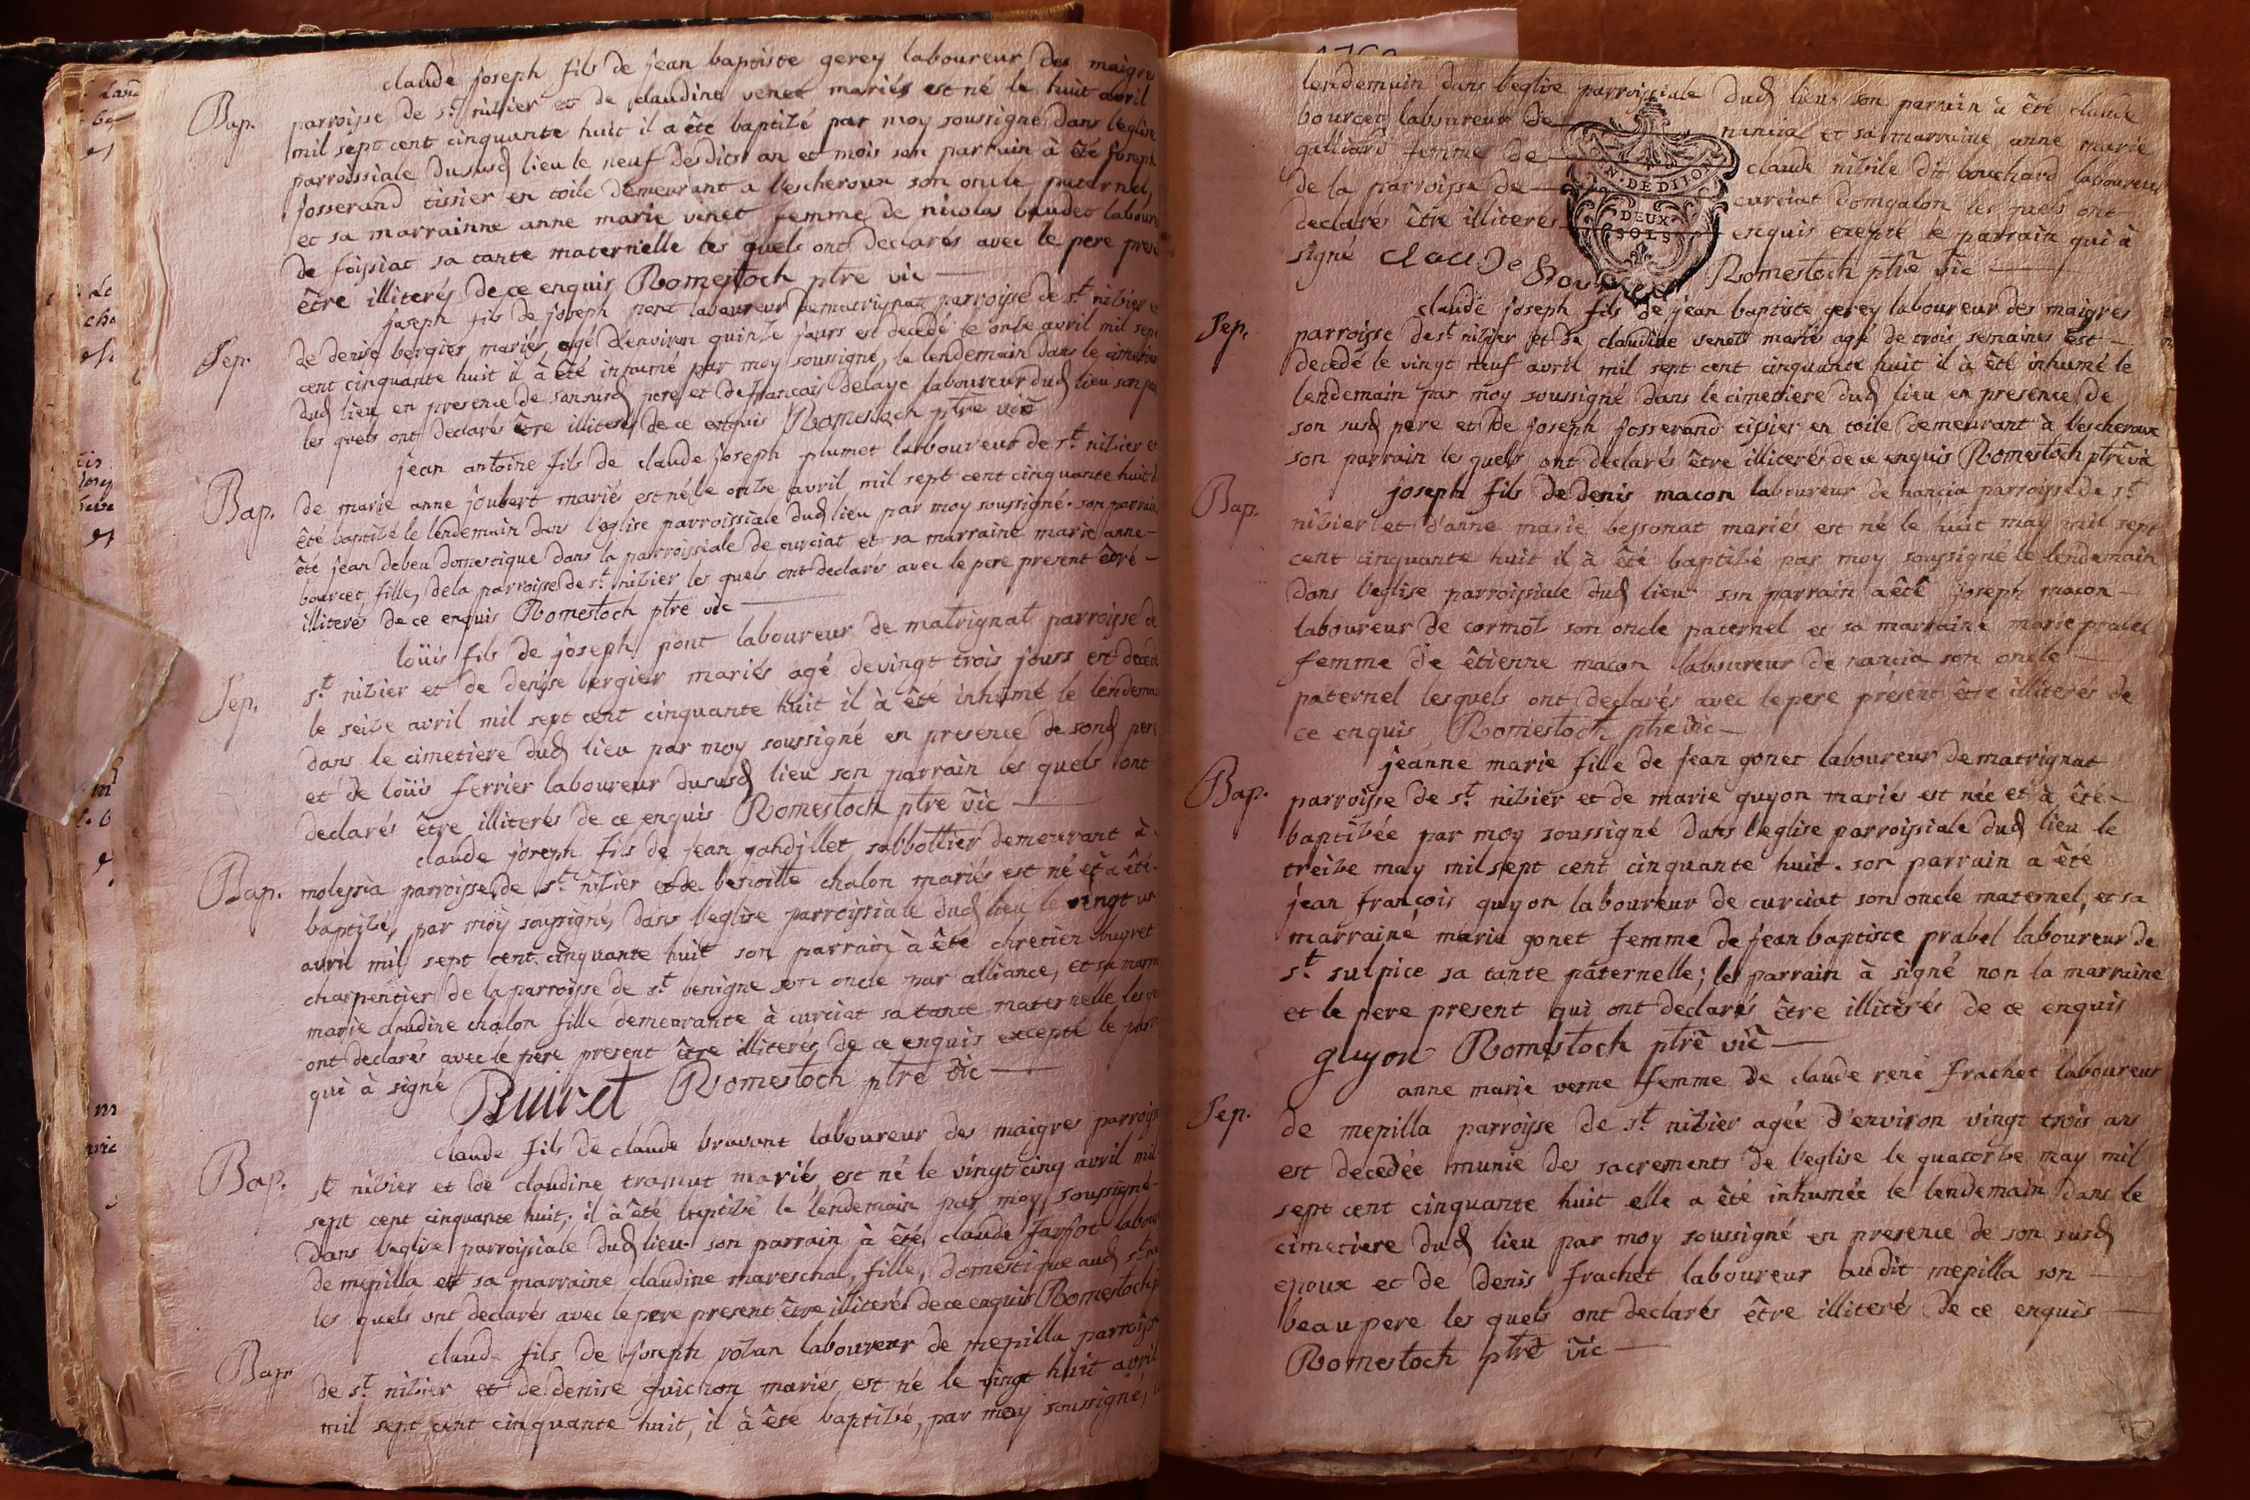 claude joseph fils de jean baptiste gerey laboureur des maigres
Bap. parroisse de st. nizier et de claudine venet mariés est né le huit avril
mil sept cent cinquante huit il a été baptizé par moy soussigné dans l'eglise
parroissiale dususd lieu le neuf desdits an et mois son parrain à été joseph
josserand tissier en toile demeurant a lescheroux son oncle paternel,
et sa marrainne anne marie vinet femme de nicolas baudet labour
de foissiat sa tante maternelle les quels ont declarés avec le pere pres
être illiterés de ce enquis Romestoch ptre vic
joseph fils de joseph pont laboureur de matrignat parroisse de st. nizier et
Sep. de denise bergier mariés agé d'environ quinze jours est decedé le onze avril mil sept
cent cinquante huit il à été inhumé par moy soussigné, le lendemain dans le cimetiere
dud lieu en presence de son susd pere et de francois delaye laboureur dud lieu son par
les quels ont declarés être illiterés de ce enquis Romestoch ptre vic
jean antoine fils de claude joseph plumet laboureur de st. nizier et
Bap. de marie anne joubert mariés est né le onze avril mil sept cent cinquante huit
été baptizé le lendemain dans l'eglise parroissiale dud lieu par moy soussigné. son parrain
été jean debeu domestique dans la parroissiale de curciat et sa marraine marie anne
bourcet fille, de la parroisse de st. nizier les quels ont declarés avec le pere present être
illiterés de ce enquis Romestoch ptre vic
loüis fils de joseph pont laboureur de matrignat parroisse de
Sep. st. nizier et de denise bergier mariés agé de vingt trois jours est decedé
le seize avril mil sept cent cinquante huit il à été inhumé le lendemain
dans le cimetiere dud lieu par moy soussigné en presence de sond pere
et de loüis ferrier laboureur dususd lieu son parrain les quels ont
declarés être illiterés de ce enquis Romestoch ptre vic
claude joseph fils de jean gandillet sabbottier demeurant à
Bap. molessia parroisse de st. nizier et de benoitte chalon mariés est né et à été
baptizé, par moy soussigné, dans l'eglise parroissiale dud lieu le vingt un
avril mil sept cent cinquante huit son parrain à été chretien buyret
charpentier de la parroisse de st. benigne son oncle par alliance, et sa marra
marie claudine chalon fille demeurante à curciat sa tante maternelle les qu
ont declarés avec le pere present être illiterés de ce enquis excepté le parr
qui à signé Buiret Romestoch ptre vic
claude fils de claude bravont laboureur des maigres parroisse
Bap. st nizier et de claudine tramut mariés est né le vingt cinq avril mil
sept cent cinquante huit. il à été baptizé le lendemain par moy soussigné
dans l'eglise parroissiale dud lieu. son parrain à été claude farfot labour
de mepilla et sa marraine claudine mareschal, fille, domestique aud st.
les quels ont declarés avec le pere present être illiterés de ce enquis Romestoch
claude fils de joseph rozan laboureur de mepilla parroisse
Bap. de st. nizier et de denise guichon mariés est né le vingt huit avril
mil sept cent cinquante huit, il à été baptizé, par moy soussigné,
lendemain dans l'eglise parroissiale dud lieu. son parrain à été claude
bourcet laboureur de nancia et sa marraine anne marie
galliard femme de claude nizile dit bouchard laboureur
de la parroisse de curciat domgalon les quels ont
declarés être illiterés enquis excepté le parrain qui à
signé claude Romestoch ptre vic
N. DE DIJON
DEUX
SOLS
claude joseph fils de jean baptiste gerey laboureur des maigres
Sep. parroisse de st. nizier et de claudine venett mariés agé de trois semaines est
decedé le vingt neuf avril mil sept cent cinquante huit il à été inhumé le
lendemain par moy soussigné dans le cimetiere dud lieu en presence de
son susd pere et de joseph josserand tissier en toile demeurant à lescheroux
son parrain les quels ont declarés être illiterés de ce enquis Romestoch ptre vic
joseph fils de denis macon laboureur de nancia parroisse de st.
Bap. nizier et d'anne marie bessonat mariés est né le huit may mil sept
cent cinquante huit il à été baptizé par moy soussigné le lendemain
dans l'eglise parroissiale dud lieu son parrain a été joseph macon
laboureur de cormoz son oncle paternel et sa marraine marie prabel
femme de étienne macon laboureur de nancia son oncle
paternel lesquels ont declarés avec le pere présent être illiterés de
ce enquis Romestoch ptre vic
jeanne marie fille de jean gonet laboureur de matrignat
Bap. parroisse de st. nizier et de marie guyon mariés est née et à été
baptizée par moy soussigné dans l'eglise parroissiale dud lieu le
treize may mil sept cent cinquante huit. son parrain a été
jean françois guyon laboureur de curciat son oncle maternel, et sa
marraine marie gonet femme de jean baptiste prabel laboureur de
st. sulpice sa tante paternelle; le parrain à signé non la marraine
et le pere present qui ont declarés être illiterés de ce enquis
guyon Romestoch ptre vic
anne marie verne femme de claude rené frachet laboureur
Sep. de mepilla parroisse de st. nizier agée d'environ vingt trois ans
est decedée munie des sacrements de l'eglise le quatorze may mil
sept cent cinquante huit elle a été inhumée le lendemain dans le
cimetiere dud lieu par moy soussigné en presence de son susd
epoux et de denis frachet laboureur audit mepilla son
beaupere les quels ont declarés être illiterés de ce enquis
Romestoch ptre vic